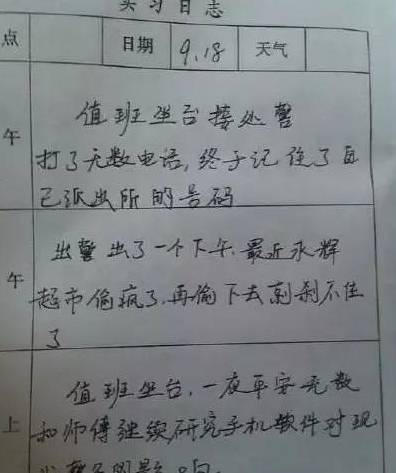 实习日志
点 日期 9.18 天气
午
值班坐台接处警
打了无数电话,终于记住了自
己派出所的号码
午
出警出了一个下午.最近永辉
超市偷疯了.再偷下去刹不住
了
上
值班坐台.一夜平安无数
和师傅继续研究手机软件对现